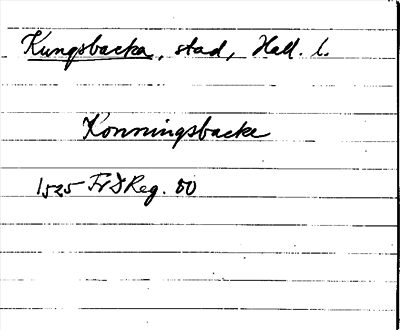 Kungsbacka, stad, Hall. l.
Konningsbacke
1525 FrIReg. 80